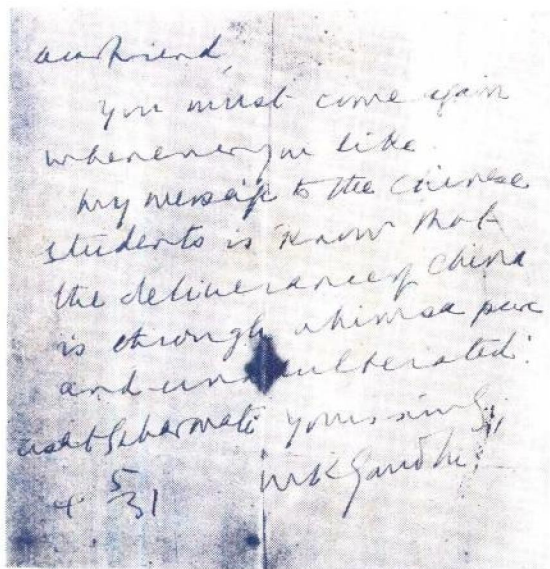 Dear friend,
You must come again
whenever you like.
My message to the Chinese
students is 'know that
the deliverance of China
is through ahimsa pure
and unadulterated.'
as at Sabarmati Yours sincly,
5/31 MKGandhi